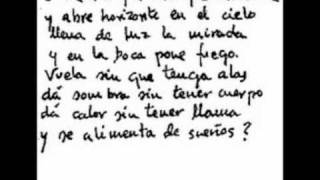 y abre horizonte en el cielo
llena de luz la mirada
y en la boca pone fuego.
Vuela sin que tenga alas
dá sombra sin tener cuerpo
dá calor sin tener llama
y se alimenta de sueños?